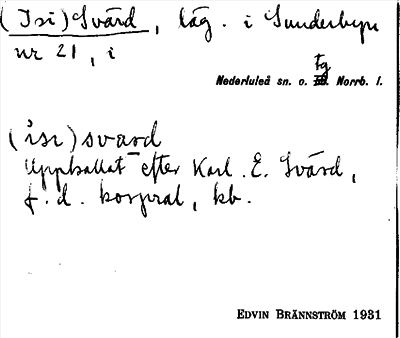 (Isi) Svärd, läg. i Sunderbyn
nr 21, i
tg
Nederluleå sn. o. Norrb. l.
(isi) svärd
Uppkallat efter Karl. E. Svärd,
f. d. korpral, kb.
EDVIN BRÄNNSTRÖM 1931